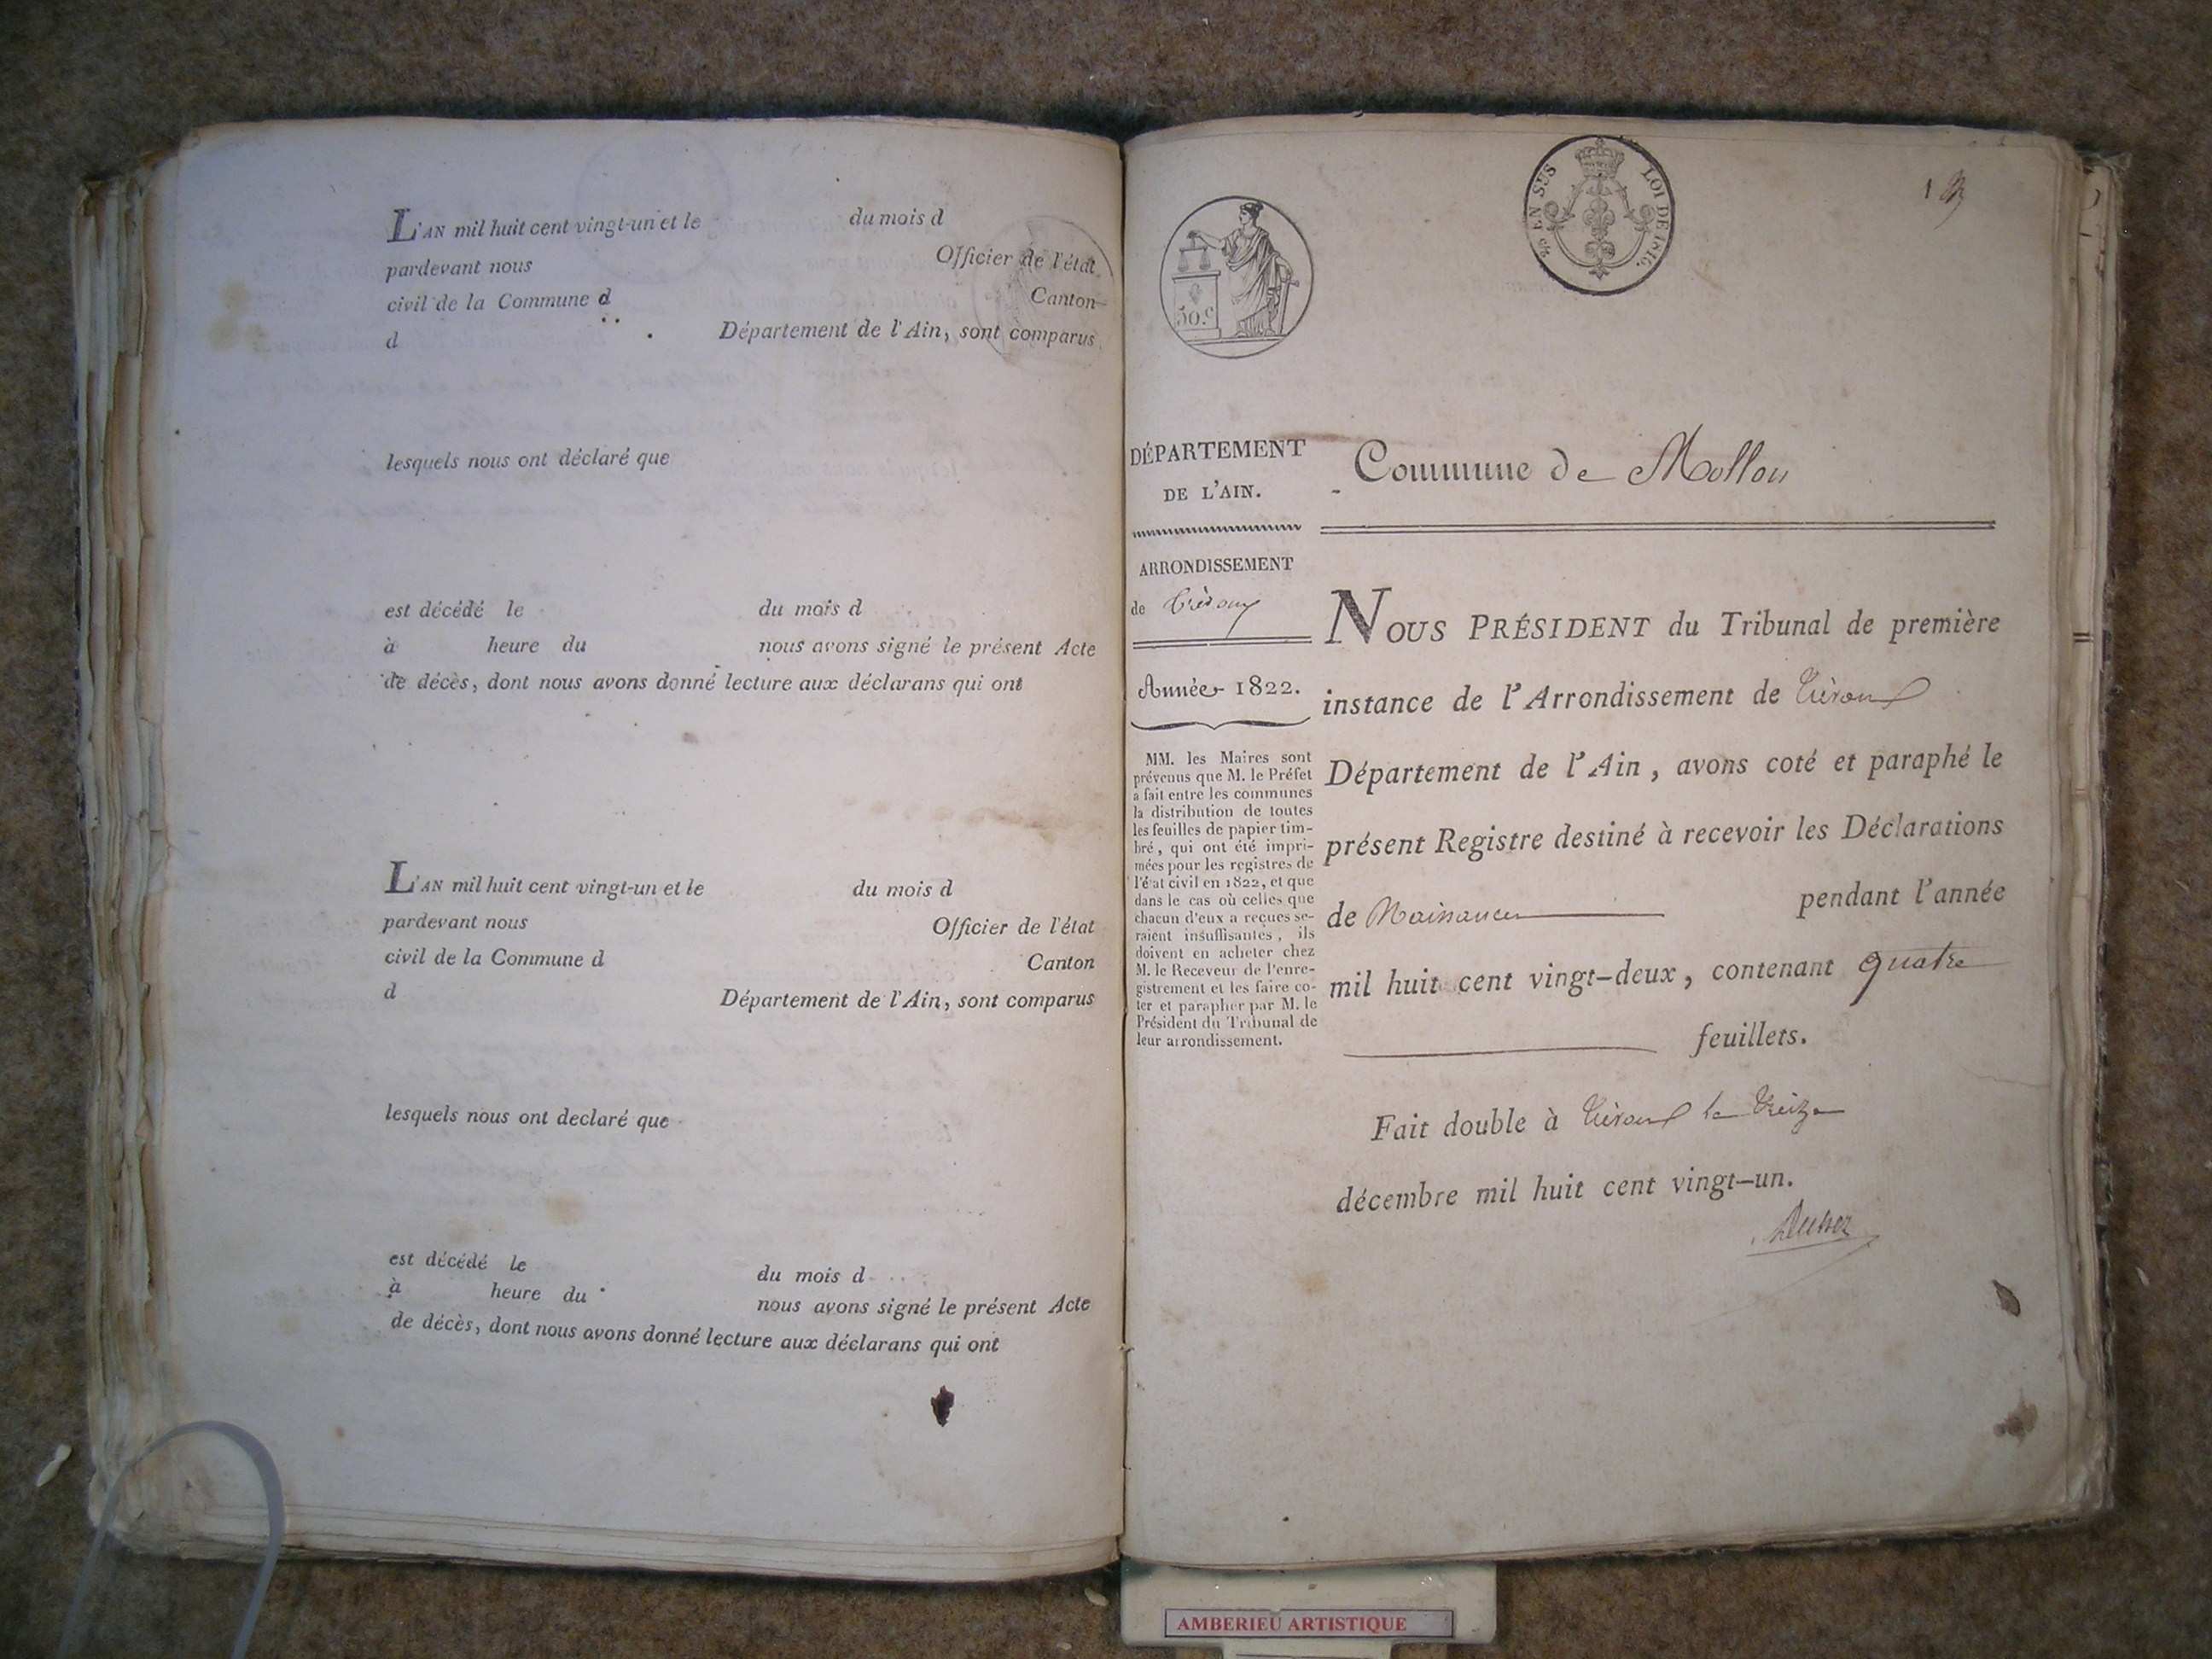 L'AN mil huit cent vingt-un et le du mois d
pardevant nous Officier de l'état
civil de la Commune d Canton
d Département de l'Ain, sont comparus
lesquels nous ont déclaré que
est décédé le du mois d
à heure du nous avons signé le présent Acte
de décès, dont nous avons donné lecture aux déclarans qui ont
L'AN mil huit cent vingt-un et le du mois d
pardevant nous Officier de l'état
civil de la Commune d Canton
d Département de l'Ain, sont comparus
lesquels nous ont declaré que
est décédé le du mois d
à heure du nous avons signé le présent Acte
de décès, dont nous avons donné lecture aux déclarans qui ont
50.c
EN SUS LOI DE 1816.
1
DÉPARTEMENT
DE L'AIN.
ARRONDISSEMENT
de Trévoux
Année 1822.
MM. les Maires sont
prévenus que M. le Préfet
a fait entre les communes
la distribution de toutes
les feuilles de papier tim-
bré, qui ont été impri-
mées pour les registres de
l'état civil en 1822, et que
dans le cas où celles que
chacun d'eux a reçues se-
raient insuffisantes, ils
doivent en acheter chez
M. le Receveur de l'enre-
gistrement et les faire co-
ter et parapher par M. le
Président du Tribunal de
leur arrondissement.
Commune de Mollon
NOUS PRÉSIDENT du Tribunal de première
instance de l'Arrondissement de Trévoux
Département de l'Ain, avons coté et paraphé le
présent Registre destiné à recevoir les Déclarations
de Naissances pendant l'année
mil huit cent vingt-deux, contenant quatre
feuillets.
Fait double à Trévoux le treize
décembre mil huit cent vingt-un.
AMBERIEU ARTISTIQUE